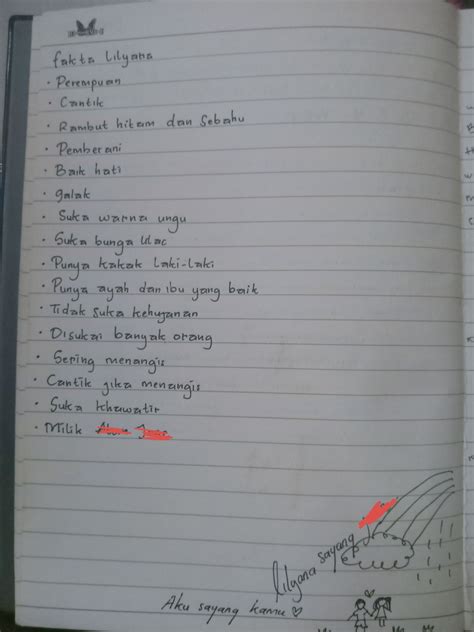 fakta lilyana
· Perempuan
· Cantik
· Rambut hitam dan Sebahu
· Pemberani
· Baik hati
· galak
· Suka warna ungu
· Suka bunga lilac
· Punya kakak laki-laki
· Punya ayah dan ibu yang baik
· Tidak suka kehujanan
· Disukai banyak orang
· Sering menangis
· Cantik jika menangis
· Suka khawatir
· Milik
lilyana sayang
Aku sayang kamu ♡